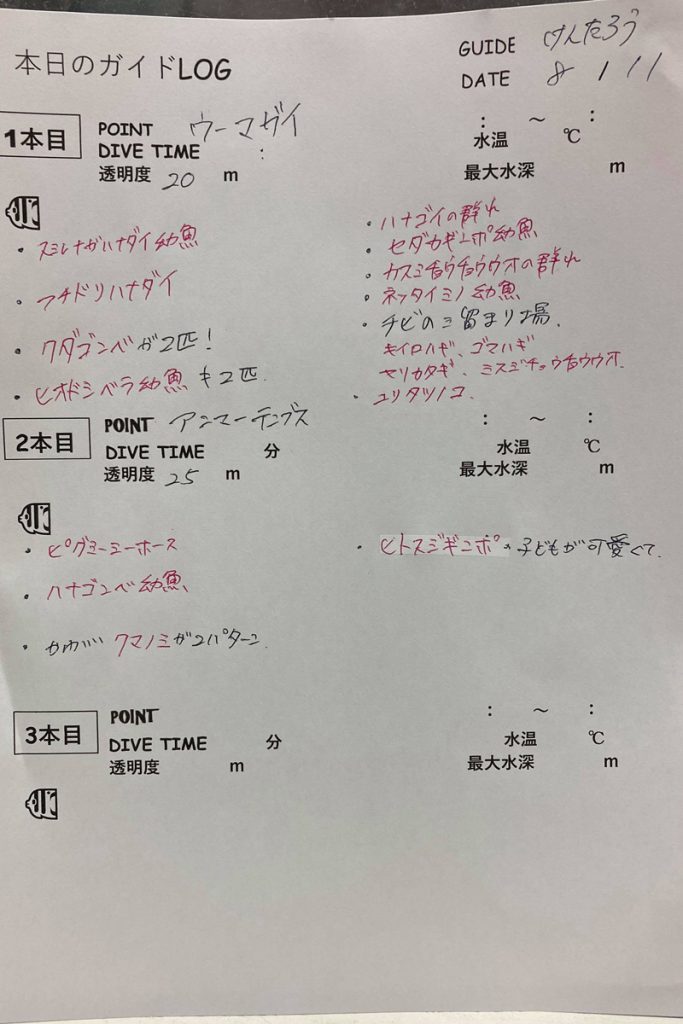 本日のガイドLOG
GUIDE けんたろう
DATE 8 / 11
1本目
POINT ウーマガイ
DIVE TIME :
透明度 20 m
: ～ :
水温 ℃
最大水深 m
・スミレナガハナダイ幼魚
・フチドリハナダイ
・クダゴンベが2匹!
・ヒオドシベラ幼魚も2匹.
・ハナゴイの群れ
・セダカギンポ幼魚
・カスミチョウチョウウオの群れ
・ネッタイミノ幼魚
・チビの三留まり場.
キイロハギ、ゴマハギ
ヤリカタギ、ミスジチョウチョウウオ.
・ユリタツノコ.
2本目
POINT アンマーテンブス
DIVE TIME 分
透明度 25 m
: ～ :
水温 ℃
最大水深 m
・ピグミーシーホース
・ハナゴンベ幼魚
・かわいい クマノミが2パターン.
・ヒトスジギンポの子どもが可愛くて.
3本目
POINT
DIVE TIME 分
透明度 m
: ～ :
水温 ℃
最大水深 m